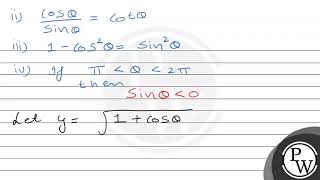 ii) cosθ/sinθ = cotθ
iii) 1 - cos²θ = sin²θ
iv) If π < θ < 2π
then
Sinθ < 0
Let y = √(1 + cosθ)
PW